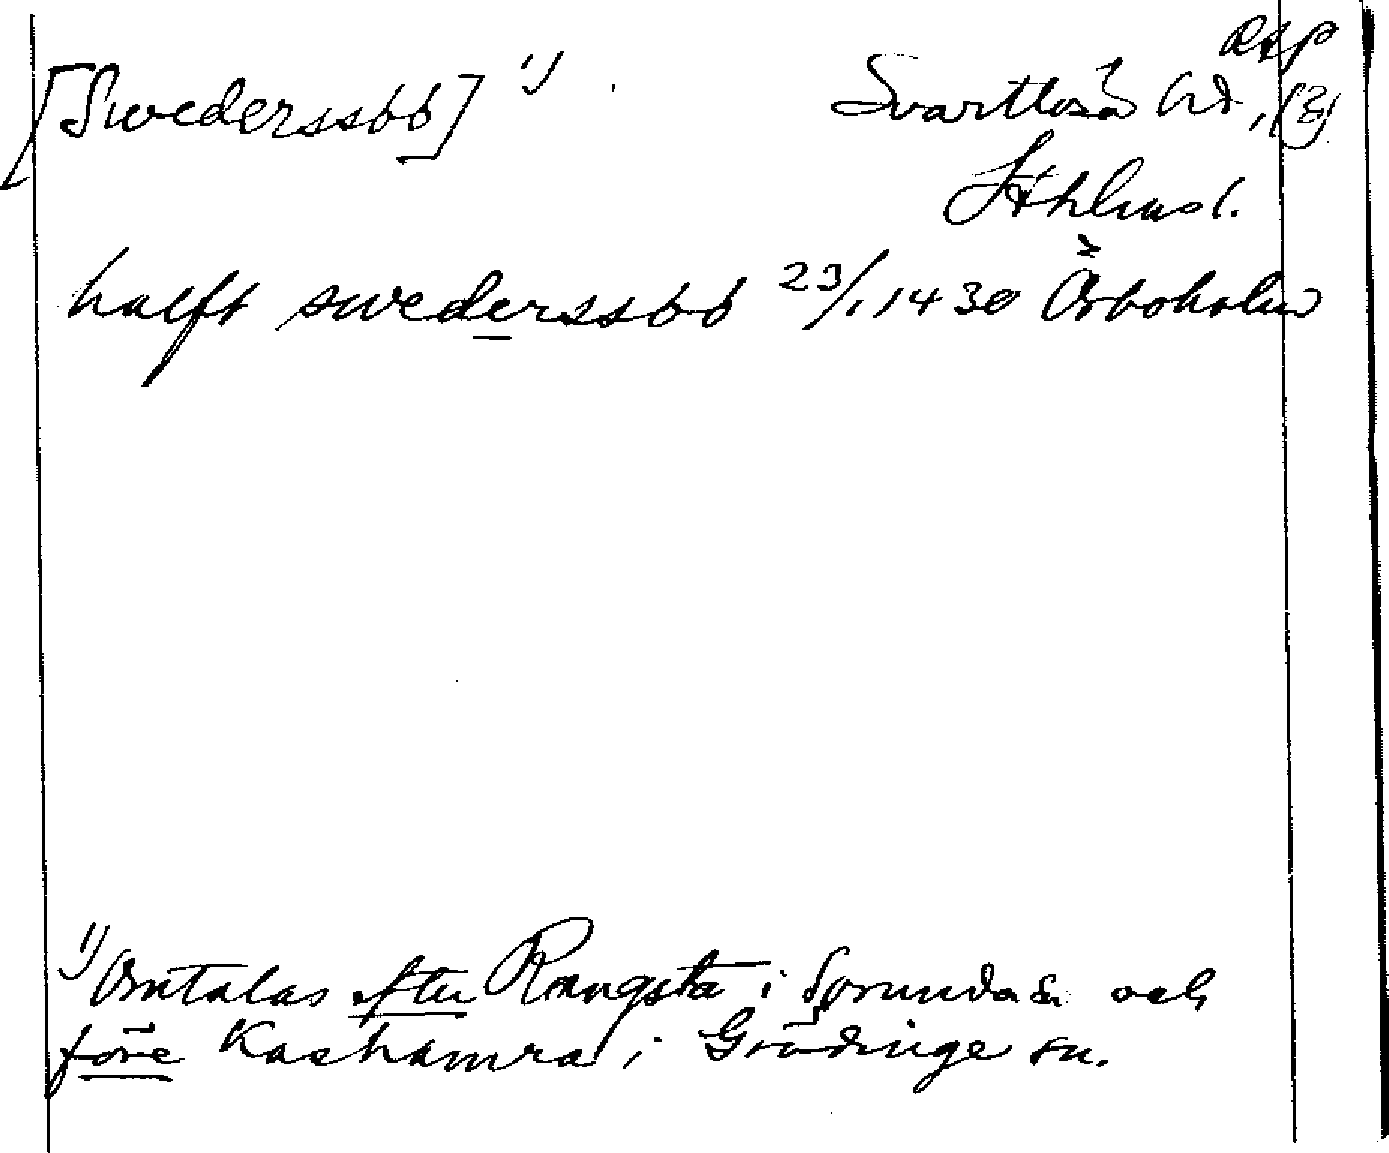 RAP
[Swederssbb] 1)
Svartlösa hd, (?)
Sthlms l.
halft swederssbb 23/1 1430 Örboholm
1) Omtalas efter Rangsta i Sorunda sn och
före Kashamra i Grödinge sn.